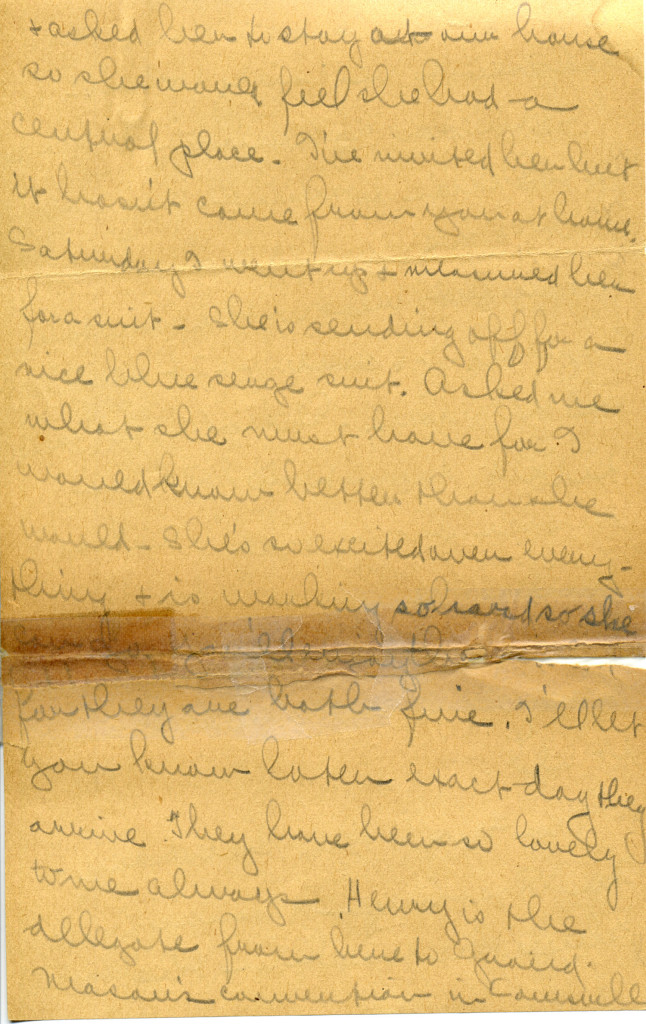 + asked her to stay at our house
so she would feel she had a
central place. I've invited her but
it hasn't come from you at home.
Saturday I went up + measured her
for a suit - She's sending off for a
nice blue serge suit. Asked me
what she must have for I
would know better than she
would - She's so excited over every-
thing + is working so hard so she
can
for they are both fine. I'll let
you know later exact day they
arrive They have been so lovely
to me always. Henry is the
delegate from here to
Mason's convention in Louisville